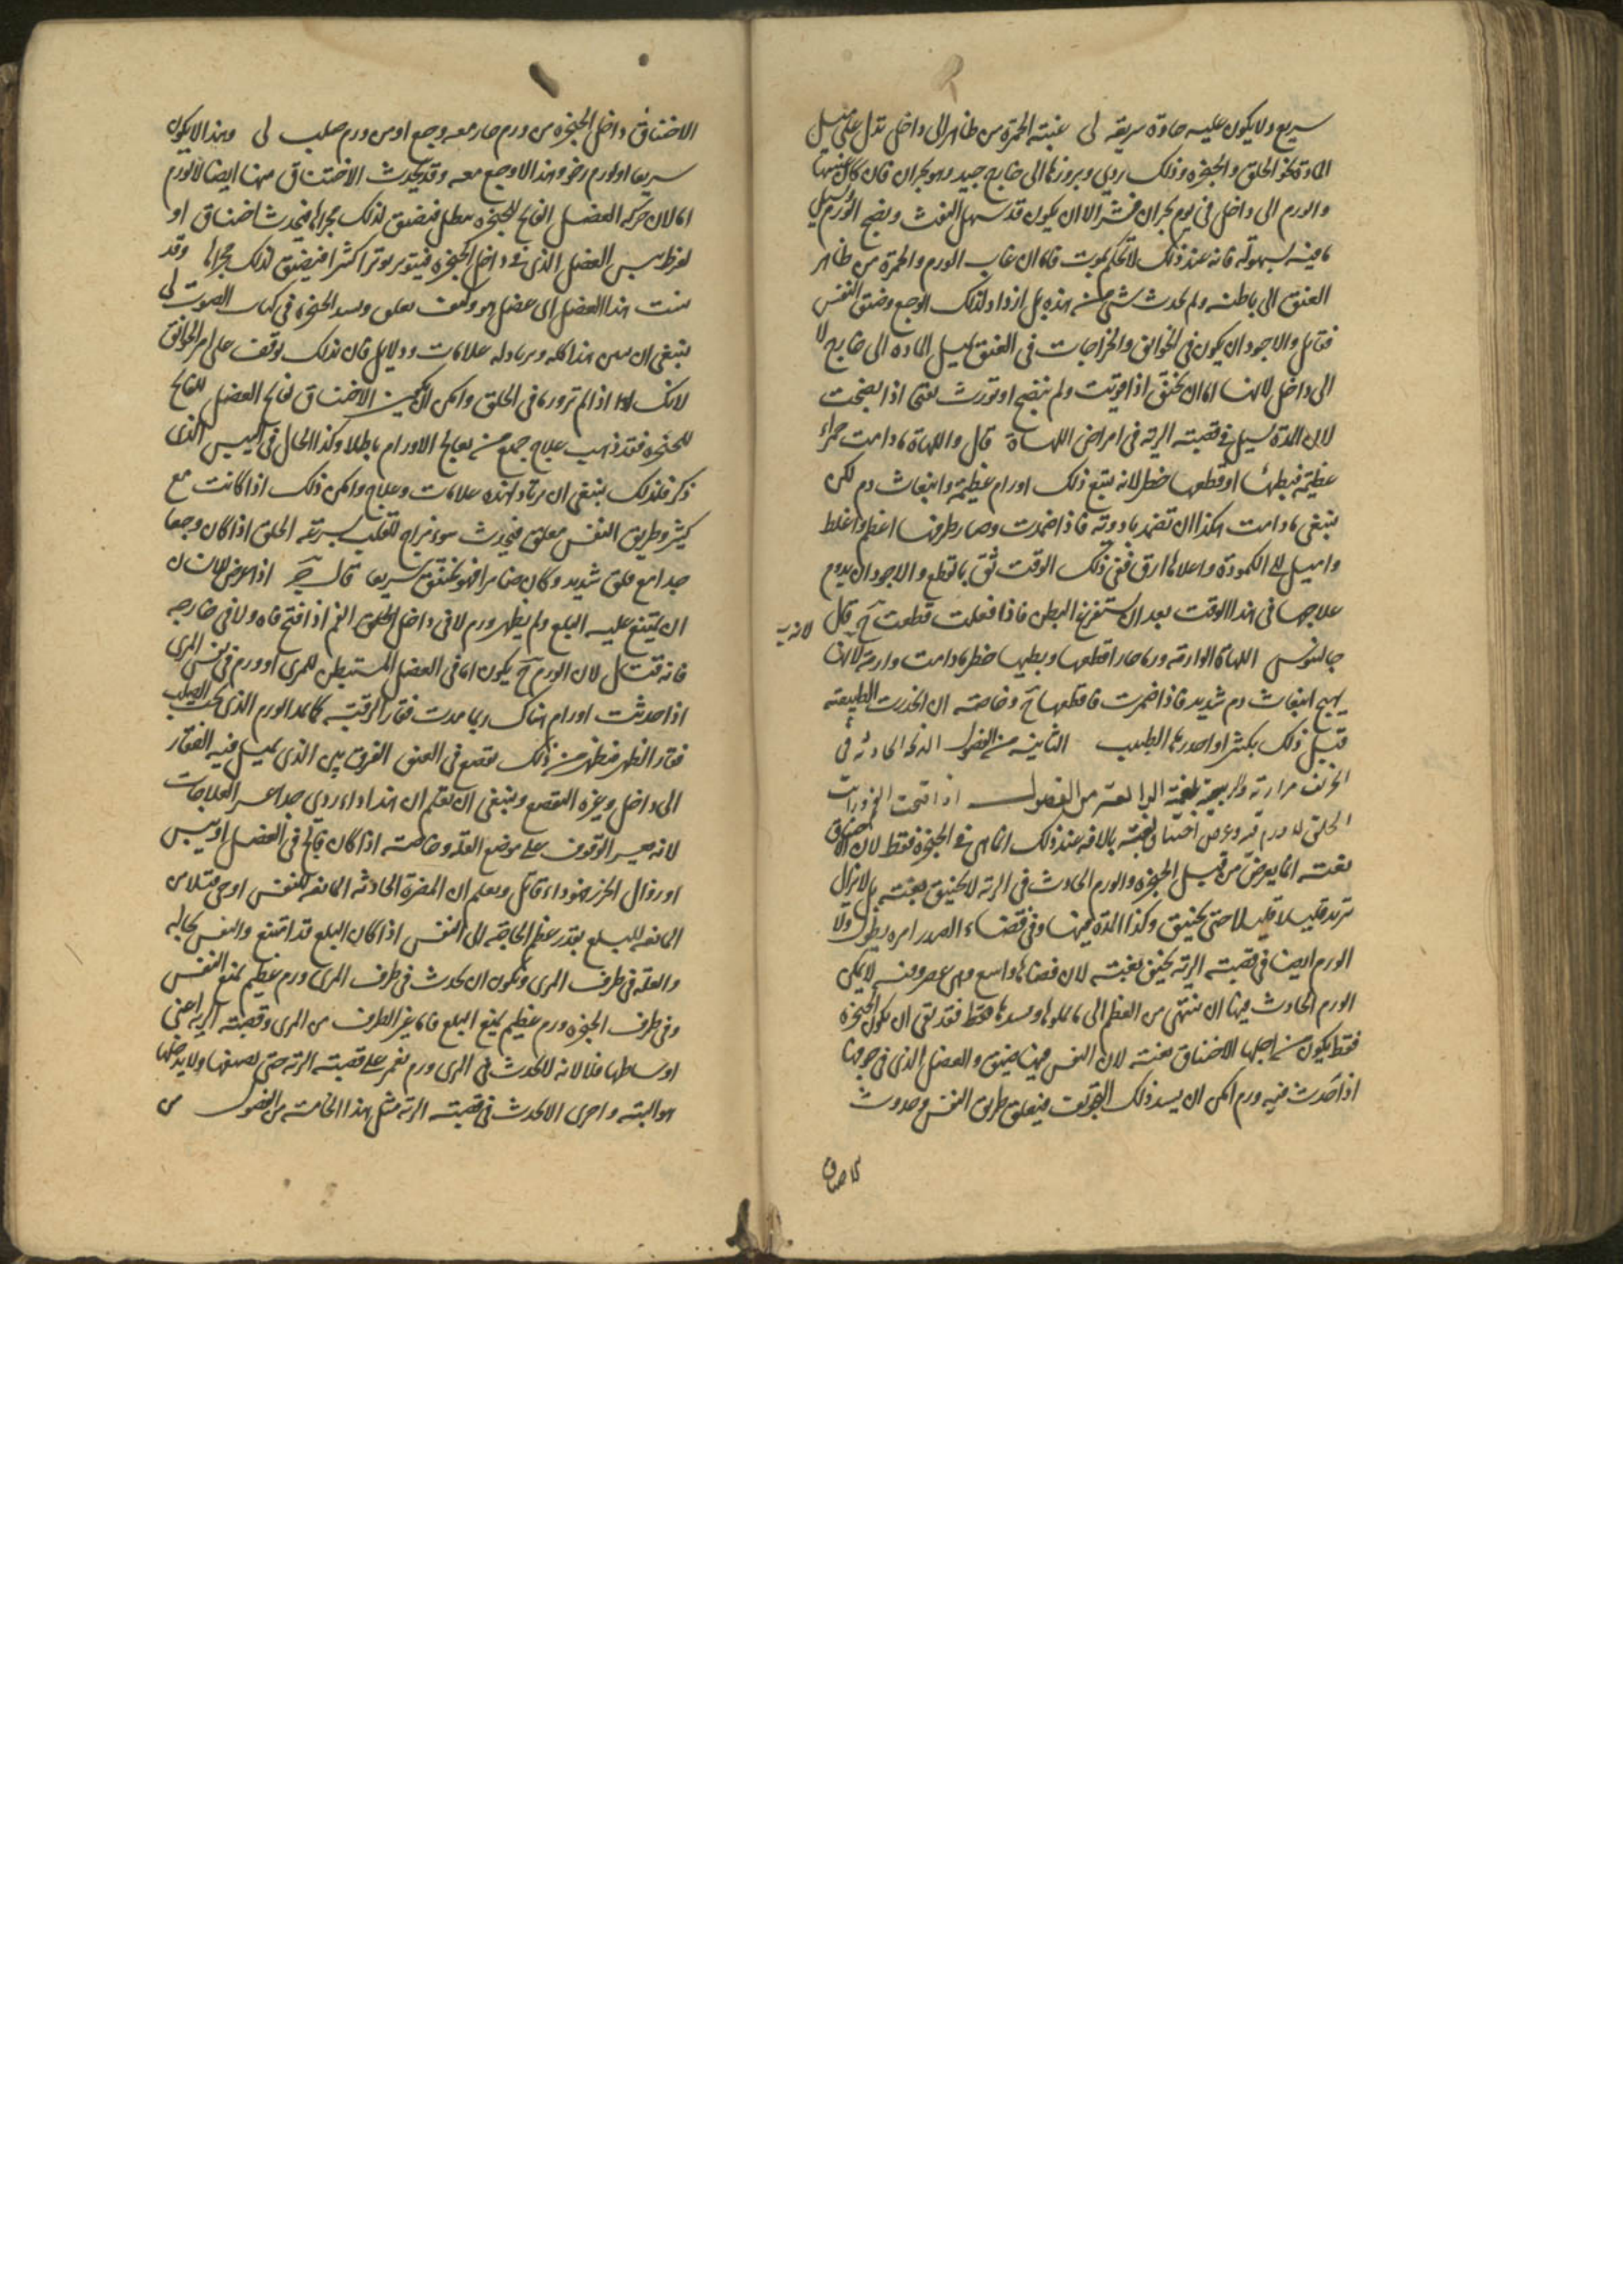 سريع ولا يكون عليه حادة سريعة لى غيبة الحمرة من ظاهر الى داخل تدل على ميل
المادة نحو الحلق والحنجرة وذلك ردي وبروزها الى خارج جيد وهو بحران فان كان غيبتها
والورم الى داخل في يوم بحران فشر الا ان يكون قد سهل النفث ونضج الورم وسيل
ما فيه بسهولة فانه عند ذلك لا تحكم بموت فاما ان غاب الورم والحمرة من ظاهر
العنق الى باطنه ولم يحدث شي من هذه بل ازداد لذلك الوجع وضيق النفس
فقاتل والاجود ان يكون في الخوانق والخراجات في العنق تميل المادة الى خارج لا
الى داخل لانها اما ان تخنق اذا قويت ولم تنضج او تورث تقيح اذا نضجت
لان المدة تسيل في قصبة الرية في امراض اللهاة قال واللهاة ما دامت حمراء
عظيمة فبطها او قطعها خطر لانه يتبع ذلك اورام عظيمة وانبعاث دم لكن
ينبغي ما دامت هكذا ان تضمد بادوية فاذا ضمرت وصار طرفها اعظم واغلظ
واميل الى الكمودة واعلاها ارق ففي ذلك الوقت ثق بالقطع والاجود ان يدوم
علاجها في هذا الوقت بعد ان تستفرغ البطن فاذا فعلت قطعت ح قال
لانه
جالينوس اللهاة الوارمة ورما حارا قطعها وبطها خطر ما دامت وارمة لانها
يهيج انبعاث دم شديد فاذا ضمرت فاقطعها ح وخاصة ان انحدرت الطبيعة
قبل ذلك بكثير او احدرها الطبيب الثانية من الفصول الذبحة الحادثة في
الخريف مرارية والربيعية بلغمية الرابعة من الفصول اذا فتحت الفم ورايت
الحلق لا ورم فيه وعرض اختناق بغتة بالافة عند ذلك انما هي في الحنجرة فقط لان الاختناق
بغتة انما يعرض من قبل الحنجرة والورم الحادث في الرية لا يخنق بغتة بل لا يزال
تزيد قليلا قليلا حتى يخنق وكذا المدة فيها وفي فضاء الصدر امره يطول ولا
الورم ايضا في قصبة الرية يخنق بغتة لان فضاها واسع وهي غضروفية لا يمكن
الورم الحادث فيها ان ينتهي من العظم الى ما يملوها ويسدها فقط فقد بقي ان يكون الحنجرة
فقط يكون من اجلها الاختناق بغتة لان النفس فيها ضيق والعضل الذي في جوفها
اذا حدث فيه ورم امكن ان يسد ذلك التجويف فيغلق طريق النفس وحدوث
الاختناق
الاختناق داخل الحنجرة من ورم حار معه وجع او من ورم صلب لى وهذا لا يكون
سريعا او لورم رخو وهذا لا وجع معه وقد يحدث الاختناق منها ايضا لا لورم
اما لان حركة العضل الفاتح للحنجرة تبطل فيضيق لذلك مجراها فيحدث اختناق او
لفرط يبس العضل الذي في داخل الحنجرة فيتوتر توترا كثيرا فيضيق لذلك مجراها وقد
بينت هذا العضل اي عضل هو وكيف يغلق ويسد الحنجرة في كتاب الصوت لى
ينبغي ان يبين هذا كله ويرتاد له علامات ودلايل فان بذلك توقف على امر الخوانق
لانك اذا لم تر ورما في الحلق وامكن ان يكون الاختناق لفالج العضل الفاتح
للحنجرة فقد ذهب علاج جميع من يعالج الاورام باطلا وكذا الحال في اليبس الذي
ذكر فلذلك ينبغي ان يرتاد لهذه علامات وعلاج وامكن ذلك اذا كانت مع
كثير وطريق النفس مغلق فيحدث سوء مزاج للقلب بسرعة الحلق اذا كان وجعا
جدا مع قلق شديد وكان ضامرا فهو يخنق سريعا قال ج اذا عرض لانسان
ان يمتنع عليه البلع ولم يظهر ورم لا في داخل الحلق الفم اذا فتح فاه ولا في خارجه
فانه قتال لان الورم ح يكون اما في العضل المستبطن للمري او ورم في نفس المري
اذا حدثت اورام هناك ربما مدت فقار الرقبة كما يمد الورم الذي تحت الصلب
فقار الظهر فيظهر من ذلك تقصع في العنق الفرق بين الذي يميل فيه الفقار
الى داخل وغيره التقصع وينبغي ان تعلم ان هذا داء ردي جدا عسر العلاجات
لانه عسير الوقوف على موضع العلة وخاصة اذا كان فالج في العضل او يبس
او زوال الخرز فهو داء قاتل ويعلم ان المضرة الحادثة المانعة للنفس اوحى قتلا من
المانعة للبلع بقدر عظم الحاجة الى النفس اذا كان البلع قد امتنع والنفس بحاله
والعلة في طرف المري ويكون ان يحدث في طرف المري ورم عظيم يمنع النفس
وفي طرف الحنجرة ورم عظيم يمنع البلع فاما غير الطرف من المري وقصبة الرية اعني
اوساطها فلا لانه لا يحدث في المري ورم يغمر على قصبة الرية حتى يضيقها ولا يدخلها
هوا البتة واحرى الا يحدث في قصبة الرية مثل هذا الخامسة من الفصول من